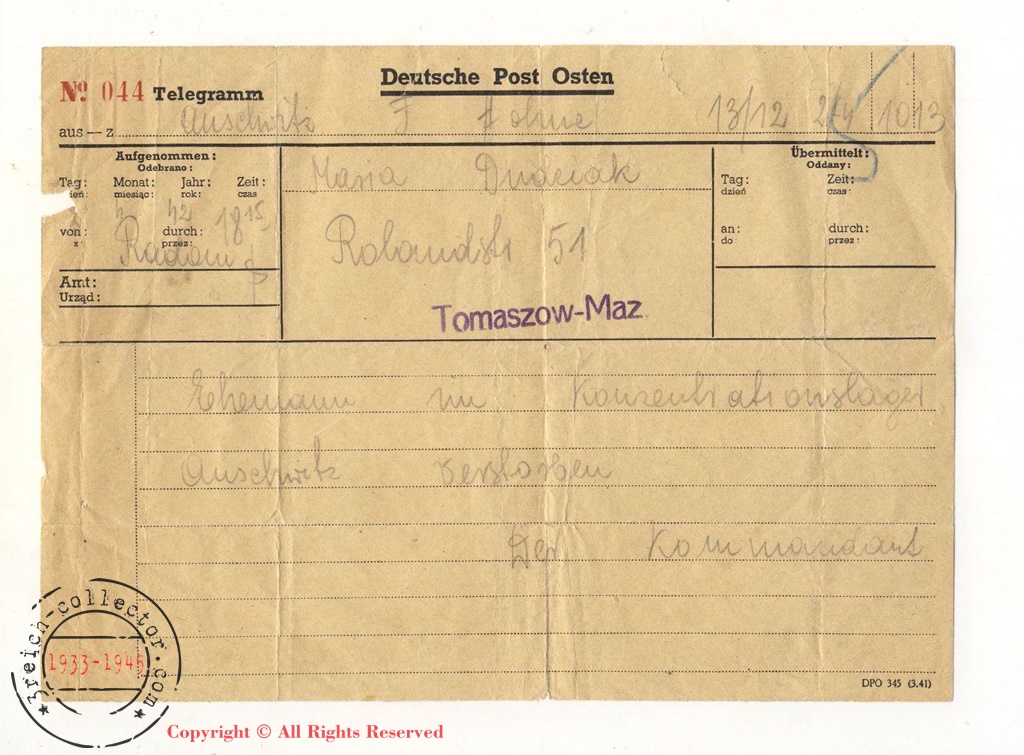 Deutsche Post Osten
Nº 044 Telegramm
aus — z Auschwitz F # ohne 13/12 2/4 1013
Aufgenommen:
Odebrano:
Tag: Monat: Jahr: Zeit:
miesiąc: rok: czas
42 1815
von: durch:
z: przez:
Radom
Amt:
Urząd:
Maria
Rolandstr 51
Tomaszow-Maz
Übermittelt:
Oddany:
Tag: Zeit:
dzień czas:
an: durch:
do: przez:
Ehemann im Konzentrationslager
Auschwitz verstorben
Der Kommandant
DPO 345 (3.41)
3reich-collector.com
1933-1945
Copyright © All Rights Reserved